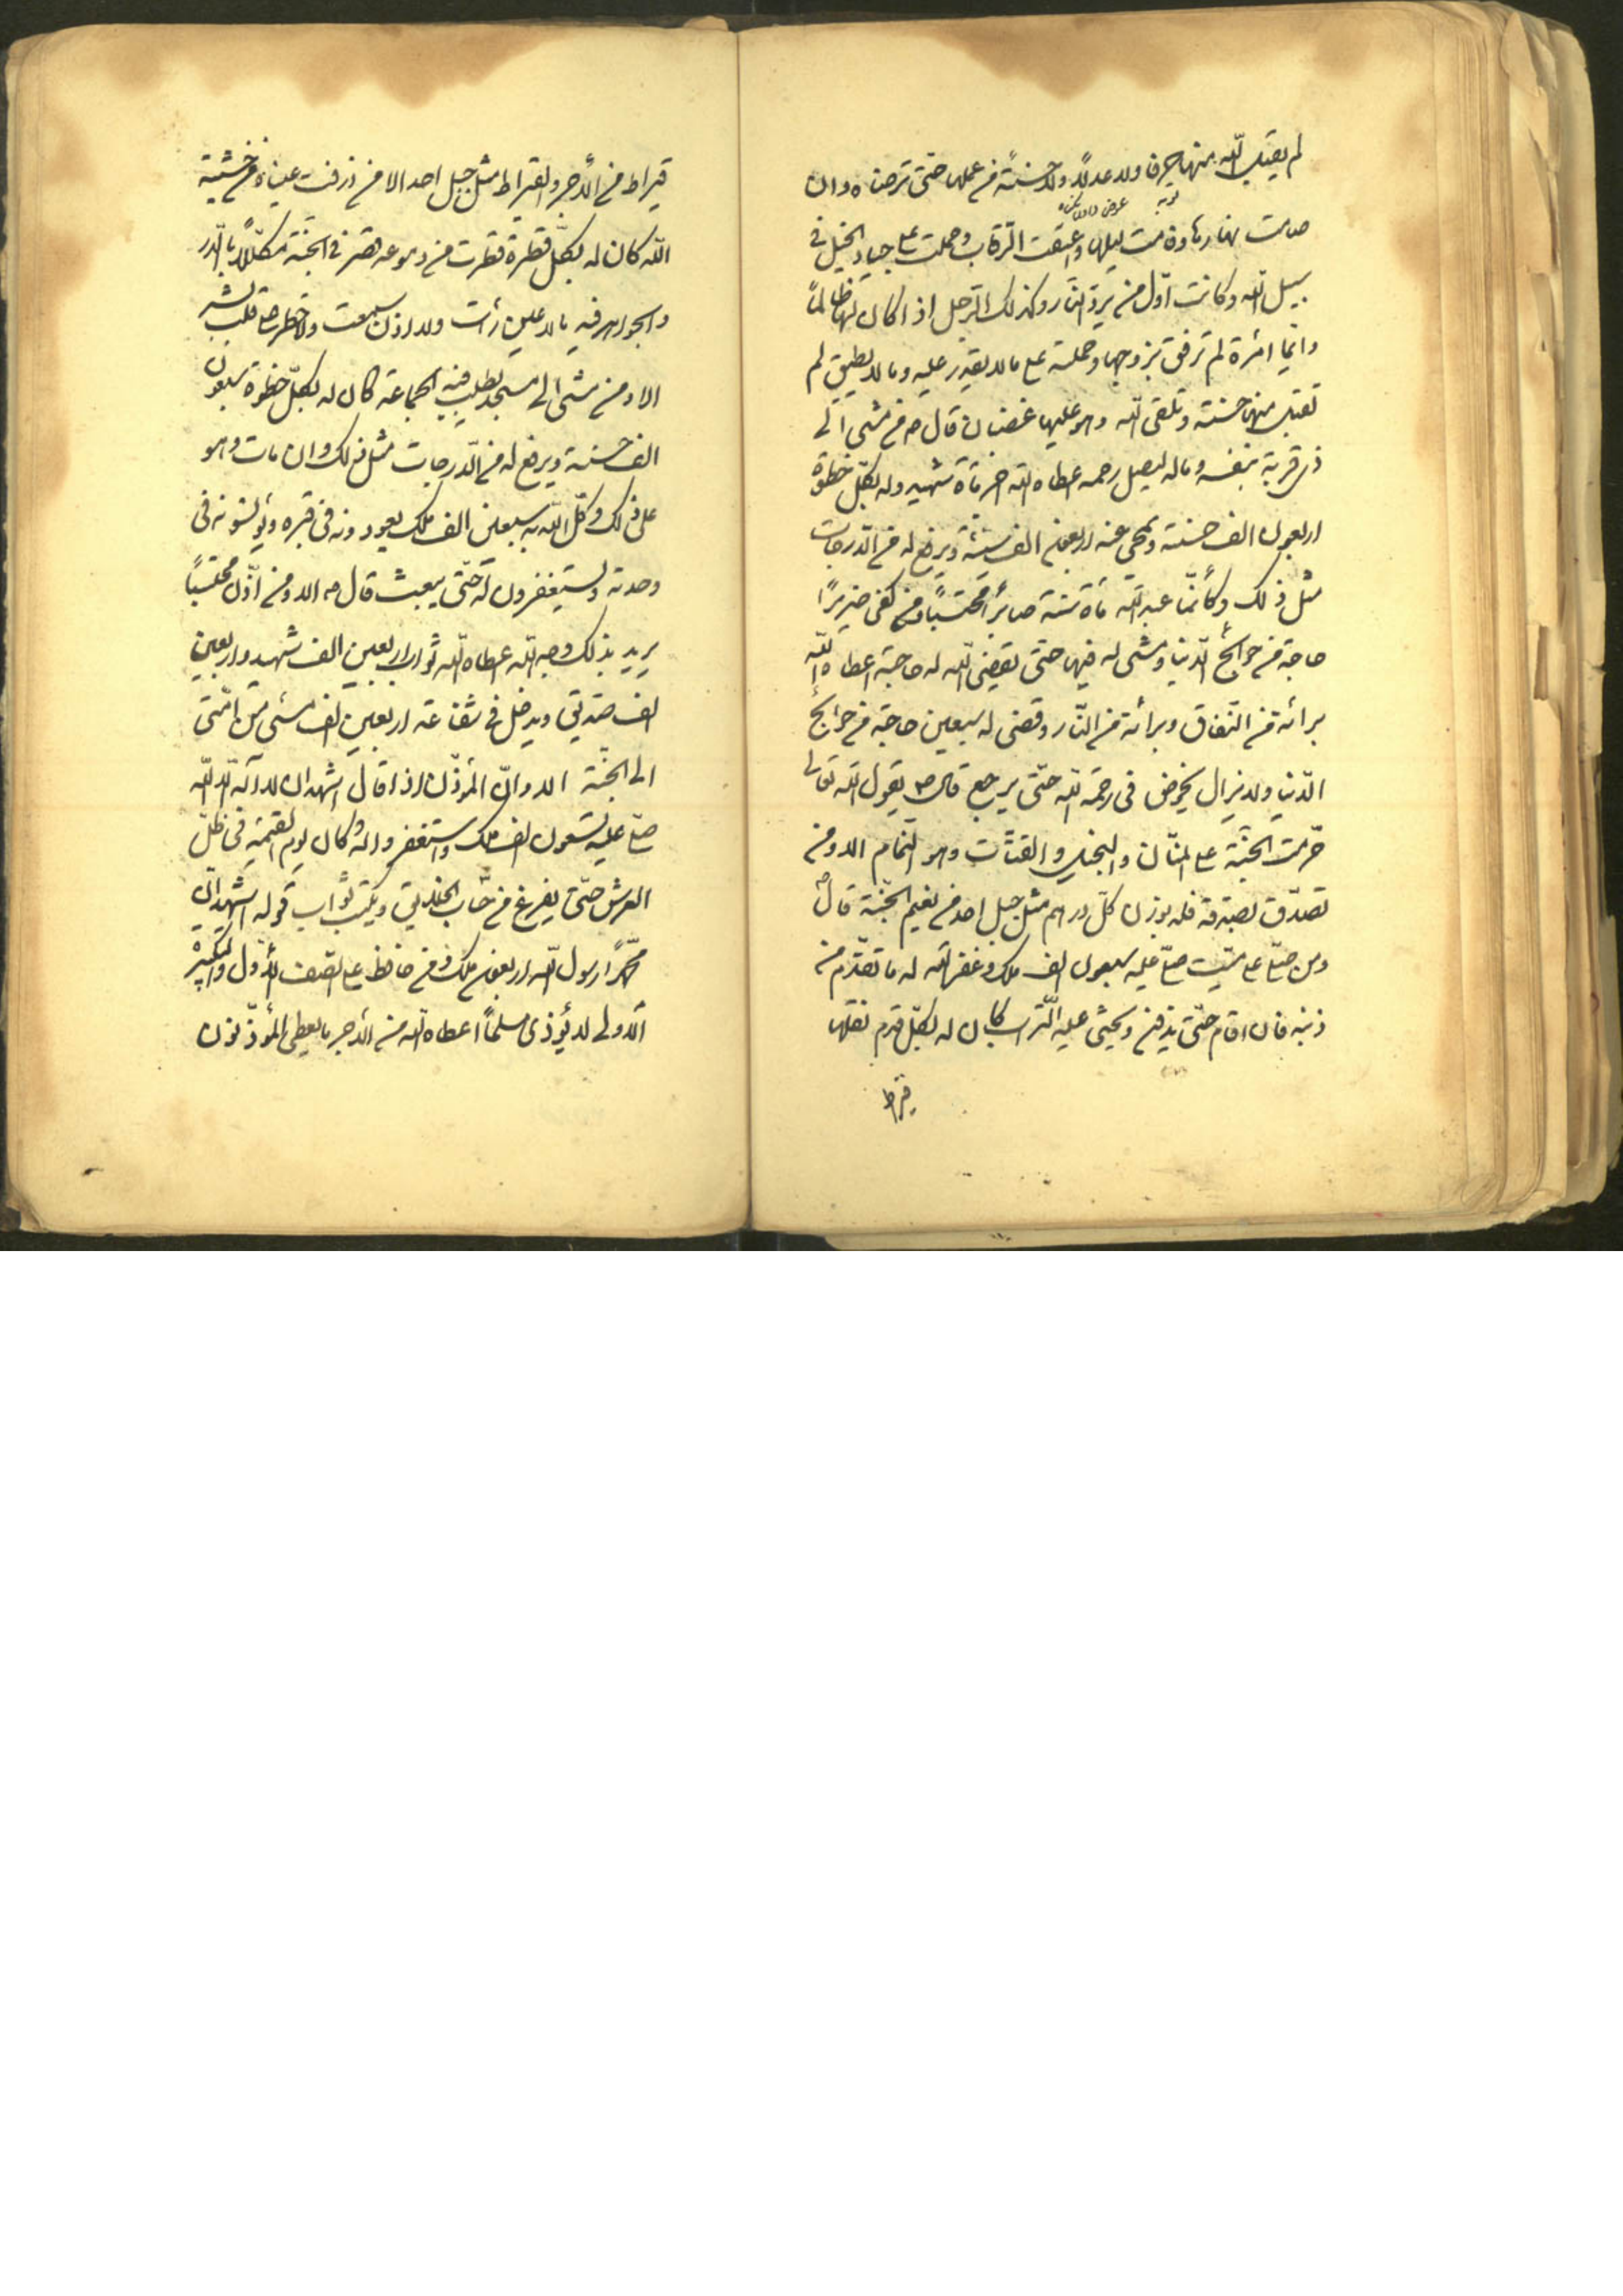 لم يقبل اللّه منها صرفا ولا عدلاً ولا حسنةً من عملها حتى ترضاه وان
صامت نهارها وقامت ليلها واعتقت الرّقاب وحملت على جياد الخيل فى
سبيل اللّه وكانت اوّل من يرد النّار وكذلك الرّجل اذا كان لها ظالماً
وايّما امرأة لم ترفق بزوجها وحملته على ما لا يقدر عليه وما لا يطيق لم
تقبل منها حسنة وتلقى اللّه وهو عليها غضبان قال ص من مشى الى
ذى قرابة بنفسه وماله ليصل رحمه اعطاه اللّه اجر مأة شهيد وله بكلّ خطوة
اربعون الف حسنة ويمحى عنه اربعون الف سيّئة ويرفع له من الدّرجات
مثل ذلك وكأنّما عبد اللّه مأة سنة صابراً محتسباً ومن كفى ضريراً
حاجة من حوائج الدّنيا ومشى له فيها حتى يقضى اللّه له حاجته اعطاه اللّه
برائة من النّفاق وبرائة من النّار وقضى له سبعين حاجة من حوائج
الدّنيا ولا يزال يخوض فى رحمة اللّه حتّى يرجع قال ص يقول اللّه تعالى
حرّمت الجنّة على المنّان والبخيل والقتّات وهو النّمام الا ومن
تصدّق بصدقة فله بوزن كلّ درهم مثل جبل احد من نعيم الجنّة قال ص
ومن صلّى على ميّت صلّى عليه سبعون الف ملك وغفر اللّه له ما تقدّم من
ذنبه فان اقام حتّى يدفن ويحثى عليه التّراب كان له بكلّ قدم نقلها
قيراط
قيراط من الأجر والقيراط مثل جبل احد الا من ذرفت عيناه من خشية
اللّه كان له بكلّ قطرة قطرت من دموعه قصر فى الجنّة مكلّلاً بالدّر
والجواهر فيه ما لا عين رأت ولا اذن سمعت ولا خطر على قلب بشر
الا ومن مشى الى مسجد يطلب فيه الجماعة كان له بكلّ خطوة سبعون
الف حسنة ويرفع له من الدّرجات مثل ذلك وان مات وهو
على ذلك وكّل اللّه به سبعين الف ملك يعودونه فى قبره ويؤنسونه فى
وحدته ويستغفرون له حتّى يبعث قال ص الا ومن اذّن محتسباً
يريد بذلك وجه اللّه اعطاه اللّه ثواب اربعين الف شهيد واربعين
الف صدّيق ويدخل فى شفاعته اربعين الف مسئ من امّتى
الى الجنّة الا وانّ المؤذّن اذا قال اشهد ان لا اله الّا اللّه
صلّى عليه تسعون الف ملك واستغفروا له وكان يوم القيمة فى ظلّ
العرش حتّى يفرغ من حساب الخلايق ويكتب ثواب قوله اشهد انّ
محمّداً رسول اللّه اربعون الف ملك ومن حافظ على الصّف الأوّل والتّكبيرة
الأولى لا يؤذى مسلماً اعطاه اللّه من الأجر ما يعطى المؤذّنون